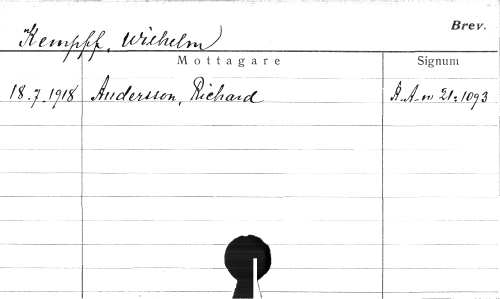 Brev.
Kempff, Wilhelm
Mottagare Signum
18.7.1918 Andersson, Richard R.A. 21:1093